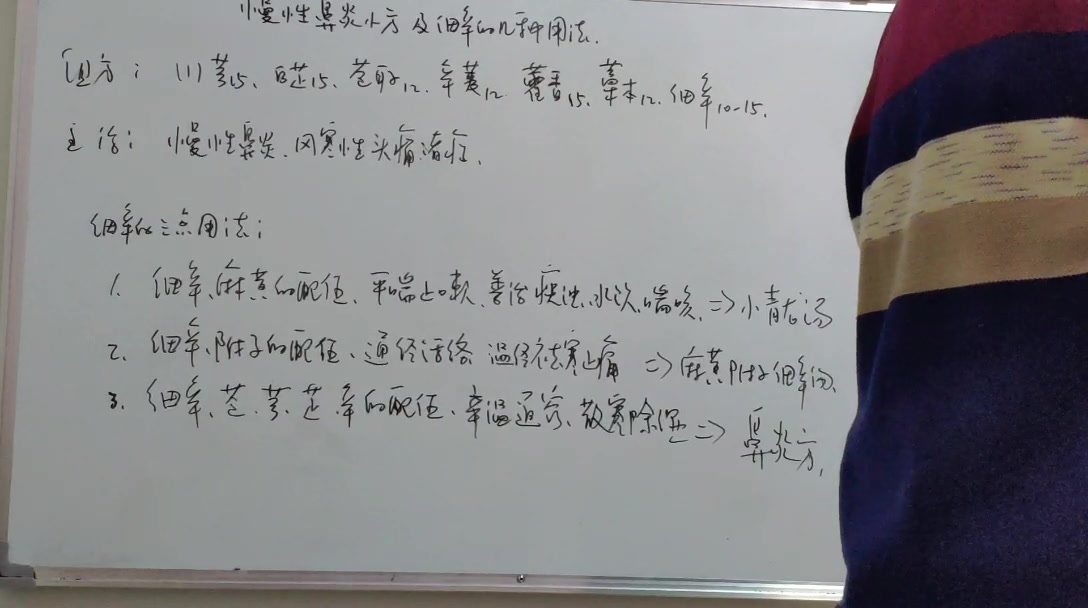 慢性鼻炎小方及细辛的几种用法.
组方: 川芎15、白芷15、苍耳子12、辛荑12、藿香15、藁本12、细辛10-15.
主治: 慢性鼻炎、风寒性头痛诸症.
细辛的三点用法:
1. 细辛、麻黄的配伍、平喘止咳、善治痰浊、水饮、喘咳, ⇒ 小青龙汤
2. 细辛、附子的配伍、通经活络 温经祛寒止痛 ⇒ 麻黄附子细辛汤.
3. 细辛、苍、芎、芷、辛的配伍、辛温通窍、散寒除湿 ⇒ 鼻炎方.